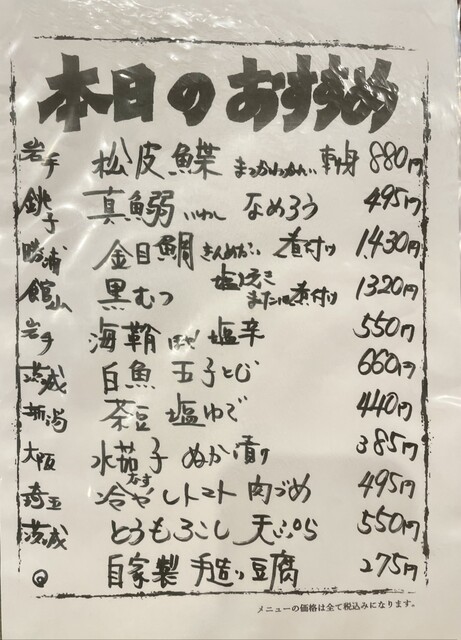 本日のおすすめ
岩手 松皮鰈 まつかわかれい 刺身 880円
銚子 真鰯 いわし なめろう 495円
勝浦 金目鯛 きんめだい 煮付け 1430円
館山 黒むつ 塩焼き または煮付け 1320円
岩手 海鞘 ほや 塩辛 550円
茨城 白魚 玉子とじ 660円
新潟 茶豆 塩ゆで 440円
大阪 水茄子 なす ぬか漬け 385円
埼玉 冷やしトマト 肉づめ 495円
茨城 とうもろこし 天ぷら 550円
自家製 手造り豆腐 275円
メニューの価格は全て税込みになります。